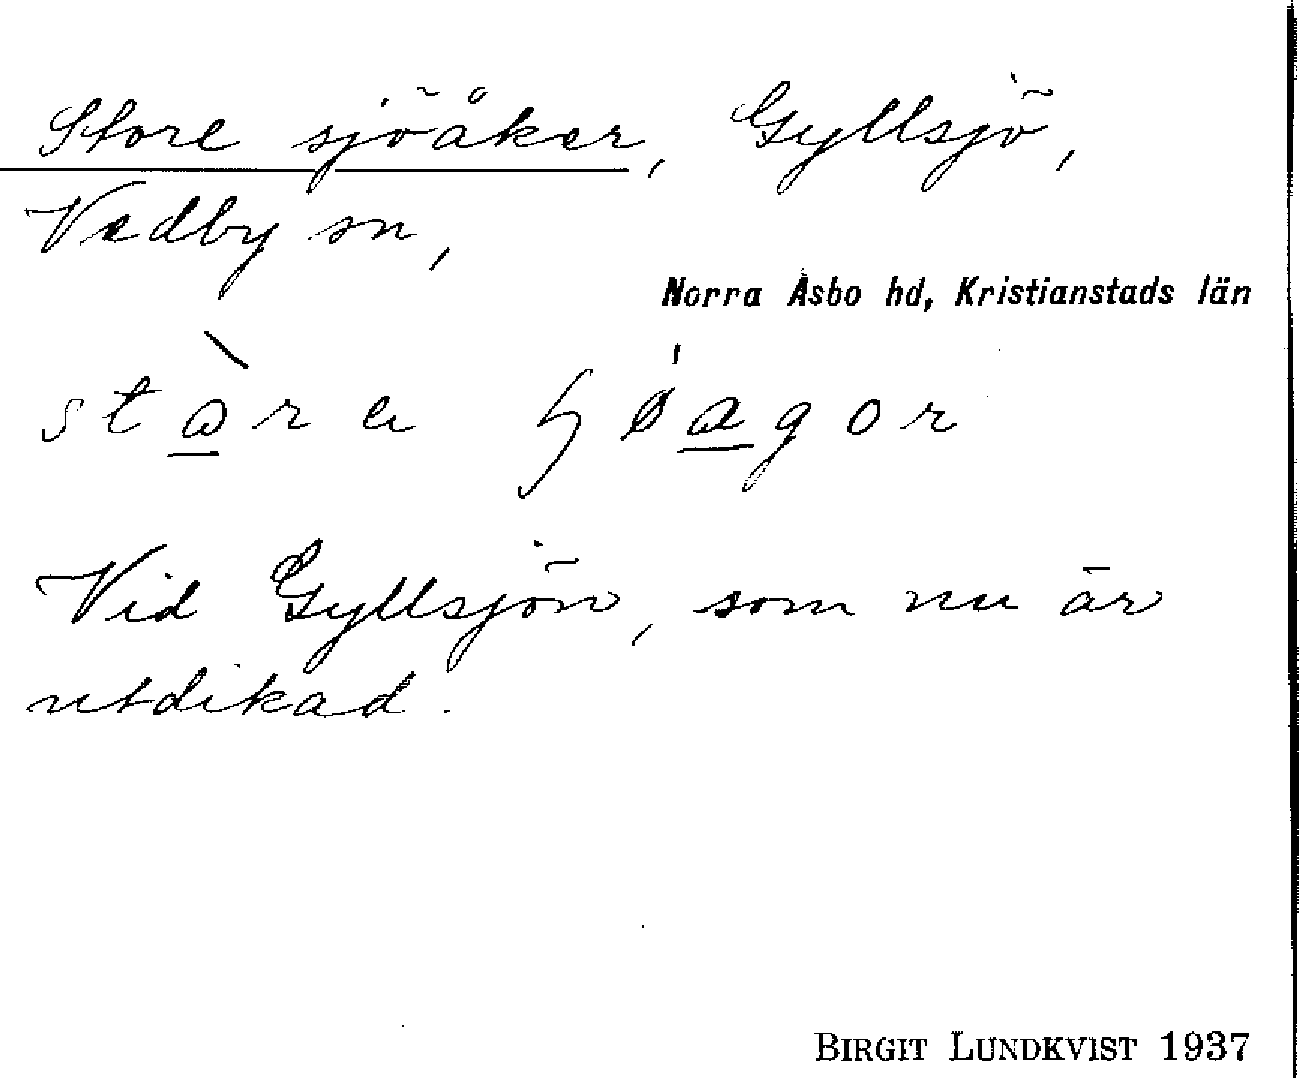 Store sjöåker, Gyllsjö,
Vedby sn,
Norra Åsbo hd, Kristianstads län
Vid Gyllsjön, som nu är
utdikad.
BIRGIT LUNDKVIST 1937